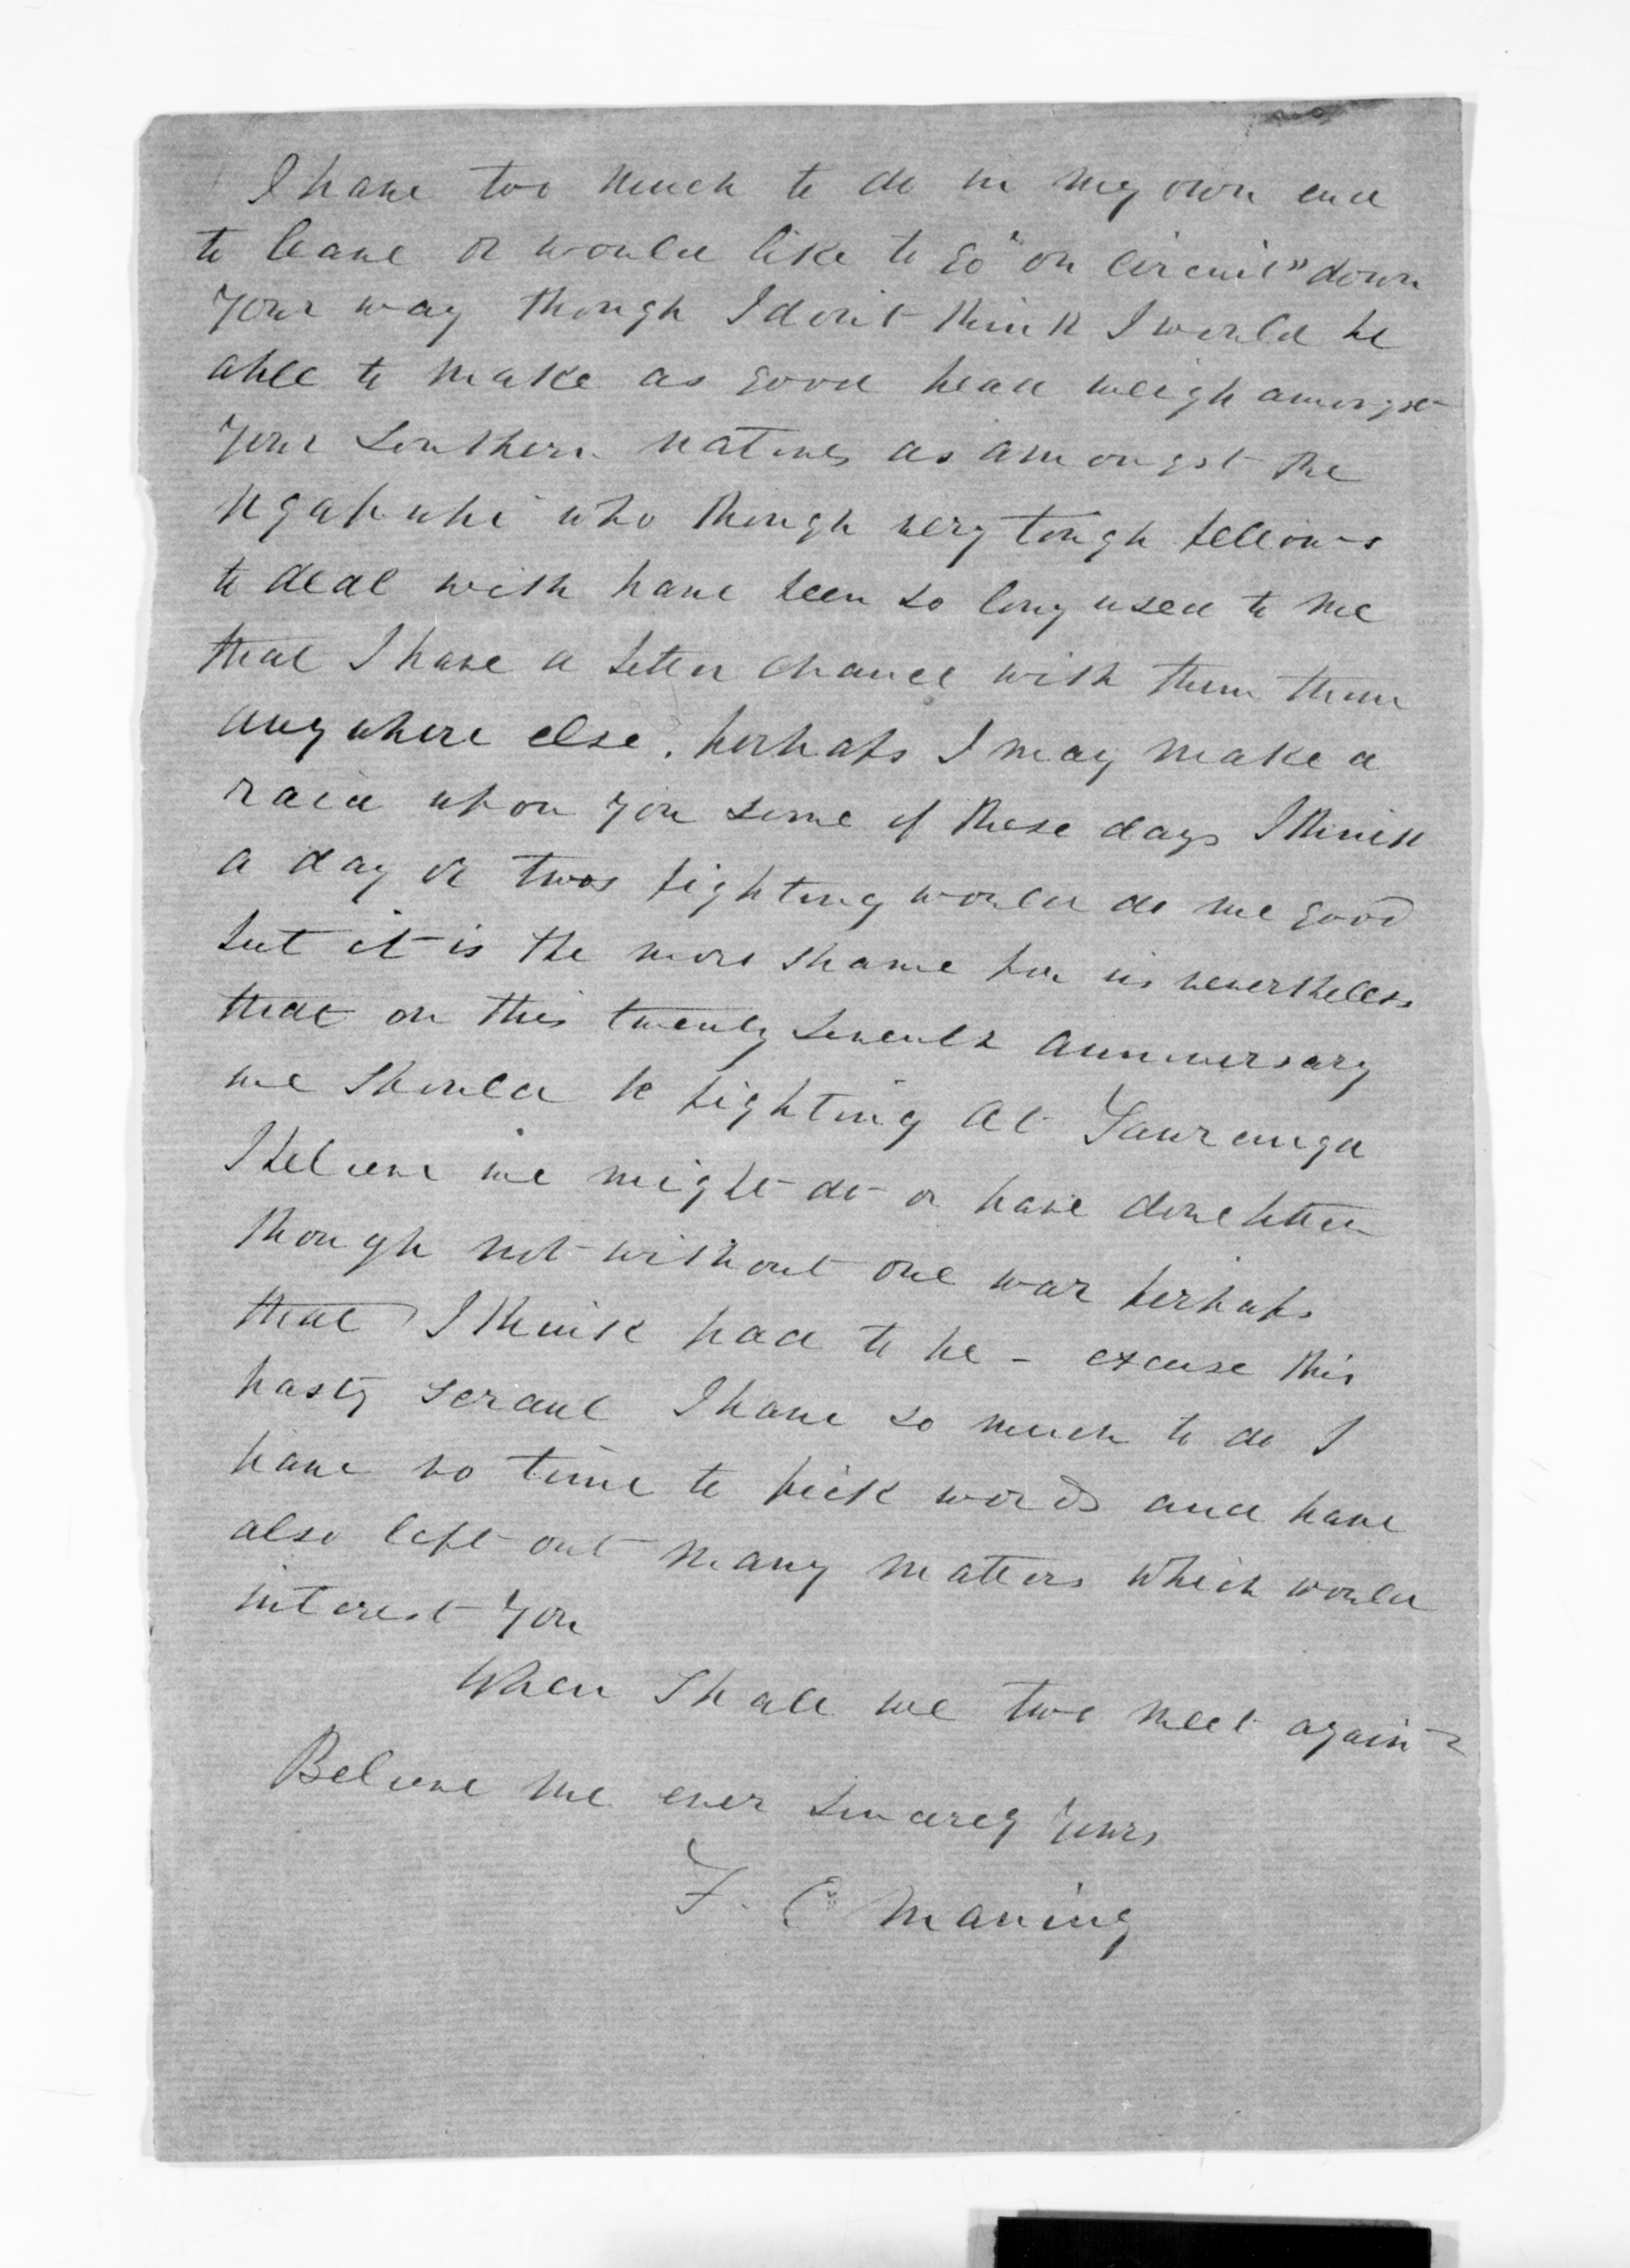 I have too much to do in my own end
to leave or would like to go "on circuit" down
your way though I don't think I would be
able to make as good head weigh amongst
your Southern natives as amongst the
ngapuhi who though very tough fellows
to deal with have been so long used to me
that I have a better chance with them than
anywhere else. perhaps I may make a
raid upon you some of these days I think
a day or twos fighting would do me good
but it is the more shame for us nevertheless
that on this twenty seventh anniversary
we should be fighting at Tauranga
I believe we might do or have done better
though not without one war perhaps
that I think had to be - excuse this
hasty scrawl I have so much to do I
have no time to pick words and have
also left out many matters which would
interest you
When shall we two meet again?
Believe me ever sincerely yours
F. E Maning